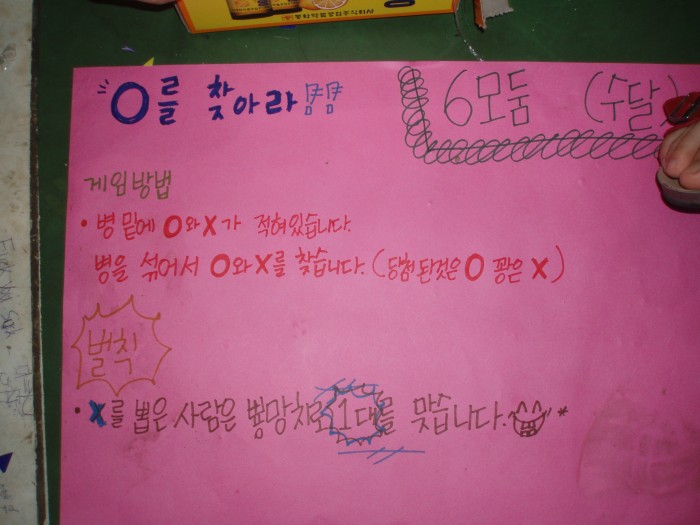 O를 찾아라!!
6모둠 (수달)
게임방법
• 병 밑에 O와 X가 적혀있습니다.
병을 섞어서 O와 X를 찾습니다. (당첨된것은 O 꽝은 X)
벌칙
• X를 뽑은 사람은 뿅망치로 1대를 맞습니다.